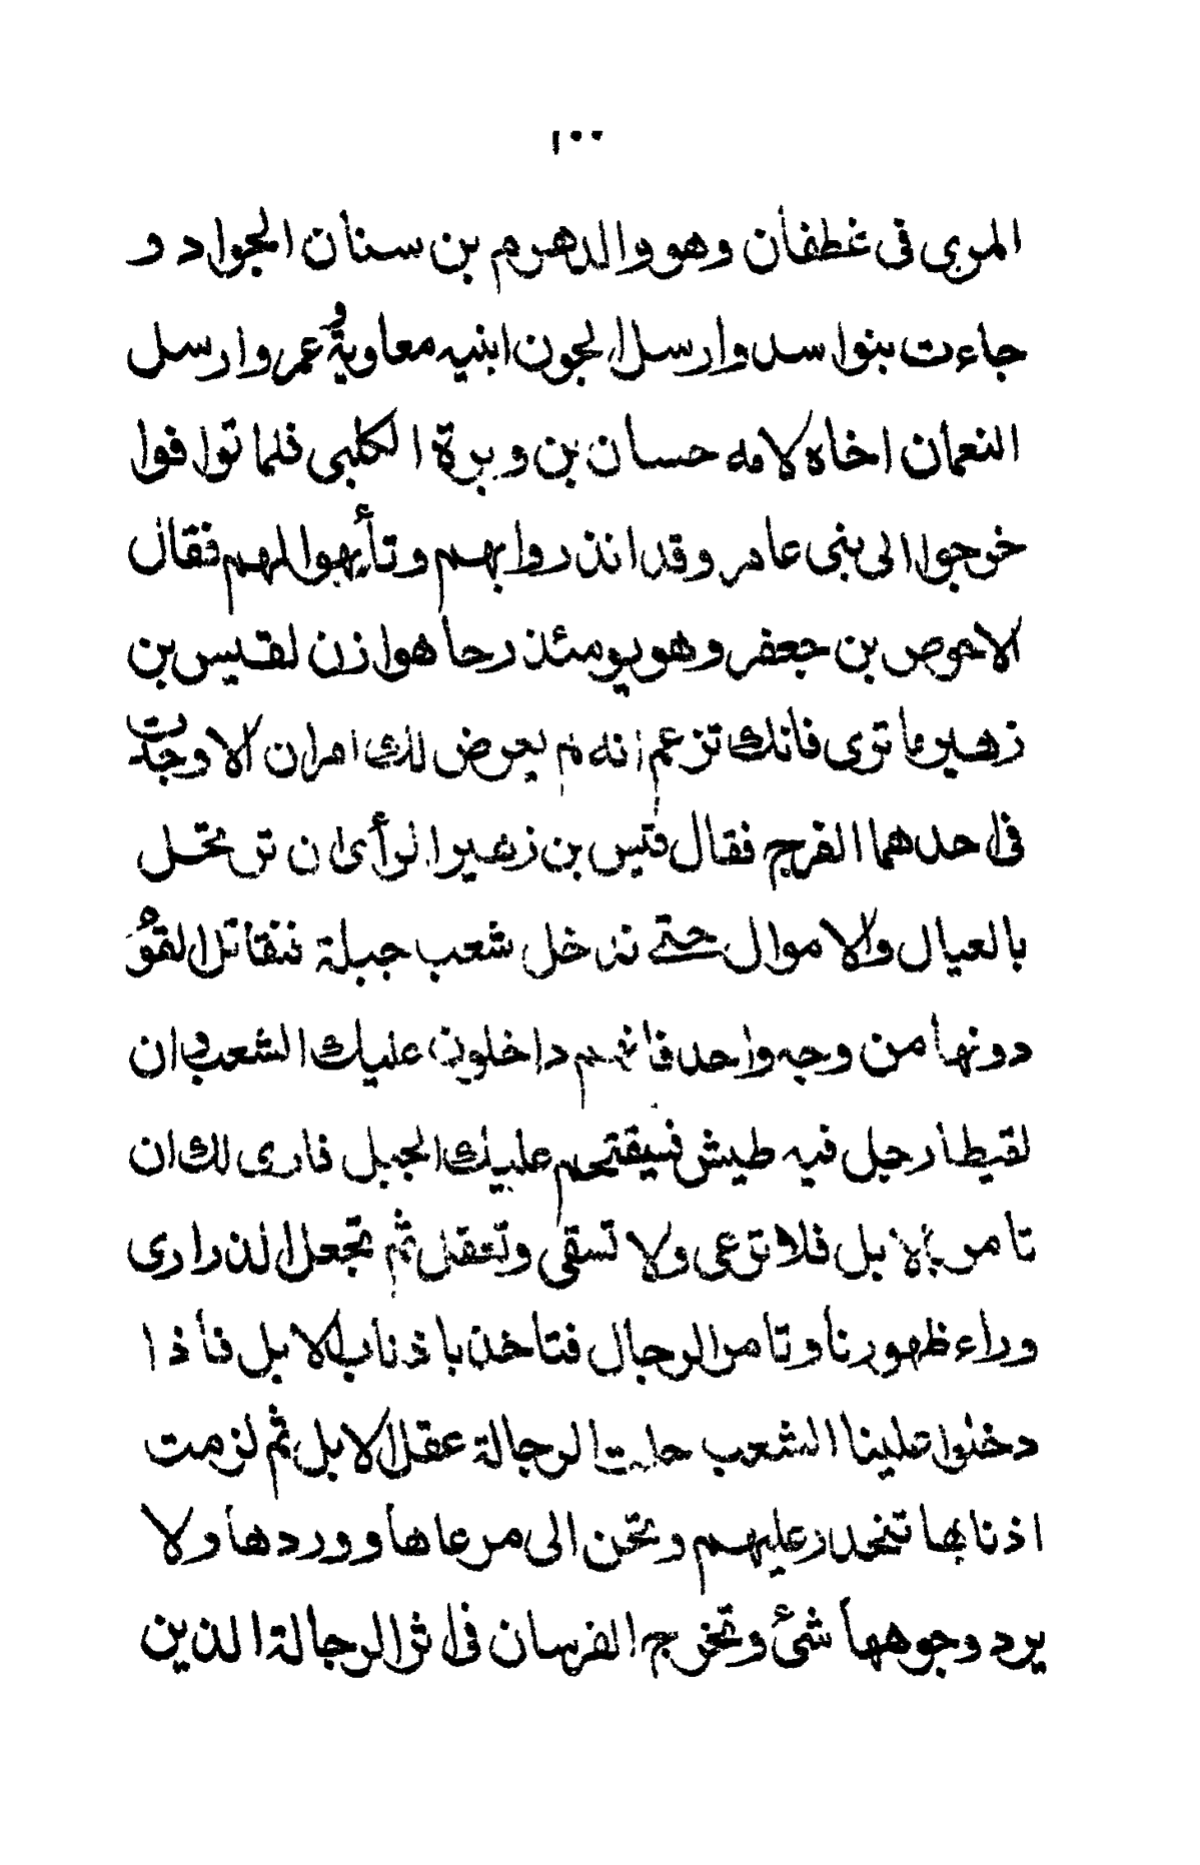 ١٠٠
المرى فى غطفان وهو والد هرم بن سنان الجواد و
جاءت بنو اسد وارسل الجون ابنيه معاوية وعمر وارسل
النعمان اخاه لامه حسان بن وبرة الكلبى فلما توافوا
خرجوا الى بنى عامر وقد انذروا بهم وتأهبوا لهم فقال
الاحوص بن جعفر وهو يومئذ رحا هوازن لقيس بن
زهير ما ترى فانك تزعم انه لم يعرض لك امران الا وجدت
فى احدهما الفرج فقال قيس بن زهير الرأى ان ترتحل
بالعيال والاموال حتى ندخل شعب جبلة فنقاتل القوم
دونها من وجه واحد فانهم داخلون عليك الشعب ان
لقيطا رجل فيه طيش فسيقتحم عليك الجبل فارى لك ان
تامر بالابل فلا ترعى ولا تسقى وتعقل ثم تجعل الذرارى
وراء ظهورنا وتامر الرجال فتاخذ باذناب الابل فاذا
دخلوا علينا الشعب حلت الرجالة عقل الابل ثم لزمت
اذنابها تنحدر عليهم وتحن الى مرعاها ووردها ولا
يرد وجوهها شئ وتخرج الفرسان فى اثر الرجالة الذين